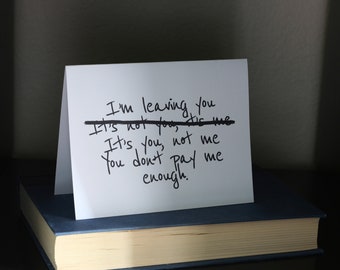 I'm leaving you
It's not you, it's me
It's you, not me
You don't pay me
enough.